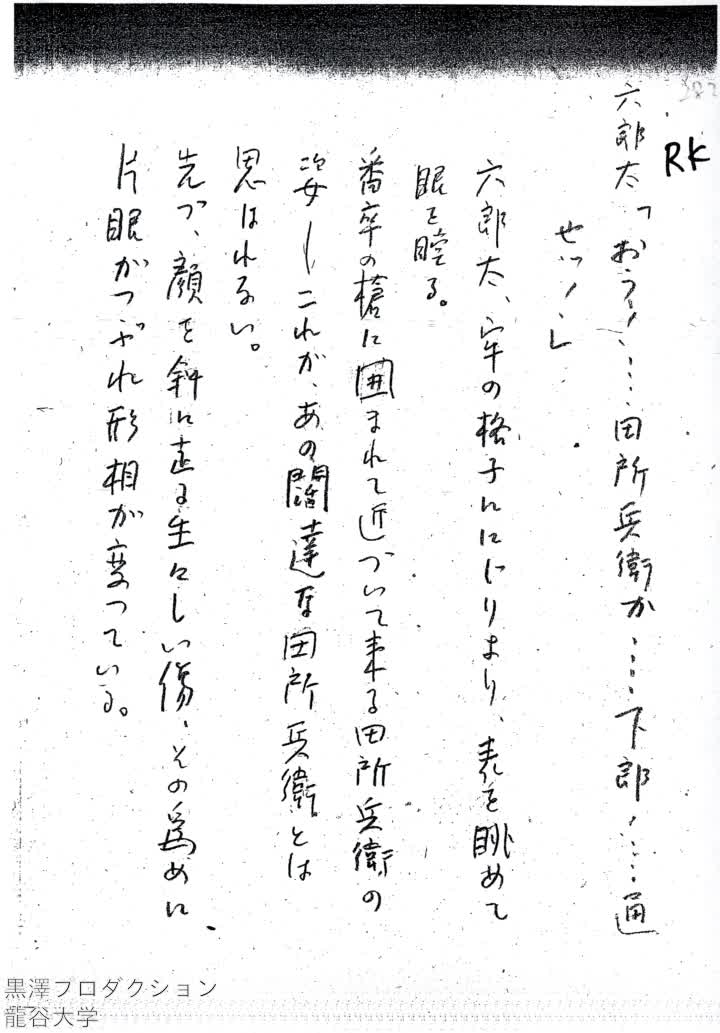 RK
六郎太「おう！……田所兵衛か……下郎！……通
せッ！」
六郎太、牢の格子ににじりより、表を眺めて
眼を瞠る。
番卒の槍に囲まれて近づいて来る田所兵衛の
姿―これが、あの闊達な田所兵衛とは
思はれない。
先づ、顔を斜に走る生々しい傷、その為めに、
片眼がつぶれ形相が変つている。
黒澤プロダクション
龍谷大学